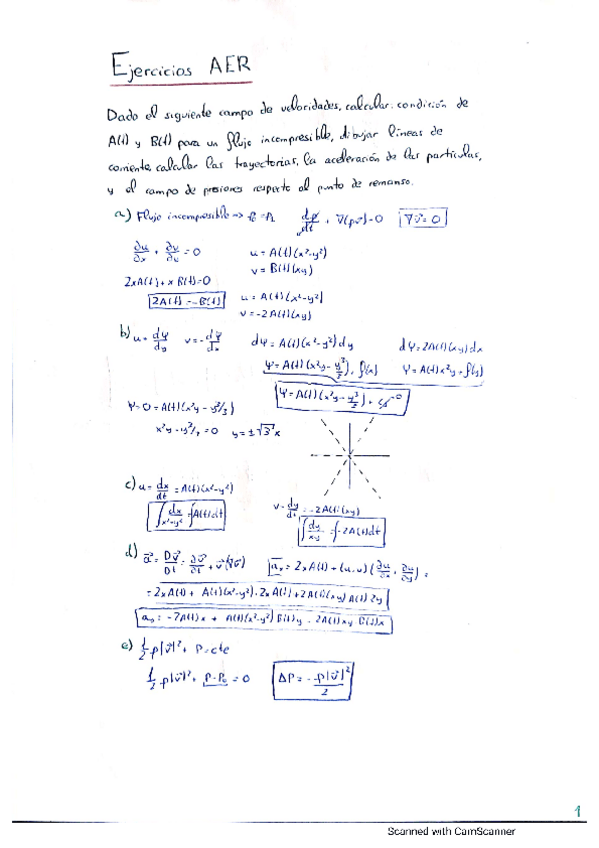 Ejercicios AER
Dado el siguiente campo de velocidades, calcular: condición de
A(t) y B(t) para un flujo incompresible, dibujar líneas de
corriente, calcular las trayectorias, la aceleración de las partículas,
y el campo de presiones respecto al punto de remanso.
a) Flujo incompresible => dρ/dt + ∇(ρv⃗)=0 ∇v⃗=0
∂u/∂x + ∂v/∂y = 0 u = A(t)(x²-y²)
v = B(t)(xy)
2xA(t) + xB(t)=0
2A(t) = -B(t) u = A(t)(x²-y²)
v = -2A(t)(xy)
b) u = dΨ/dy v = -dΨ/dx dΨ = A(t)(x²-y²)dy dΨ = 2A(t)(xy)dx
Ψ = A(t)(x²y - y³/3) + f(x) Ψ = A(t)x²y + f(y)
Ψ = A(t)(x²y - y³/3)
Ψ=0 = A(t)(x²y - y³/3)
x²y - y³/3 = 0 y = ±√3 x
c) u = dx/dt = A(t)(x²-y²) v = dy/dt = -2A(t)(xy)
∫ dx/x²-y² = ∫A(t)dt ∫ dy/xy = ∫-2A(t)dt
d) a⃗ = Dv⃗/Dt = ∂v⃗/∂t + v⃗(∇v⃗)
e) 1/2 ρ|v⃗|² + P = cte
1/2 ρ|v⃗|² + P-P₀ = 0 ΔP = - ρ|v⃗|²/2
1
Scanned with CamScanner